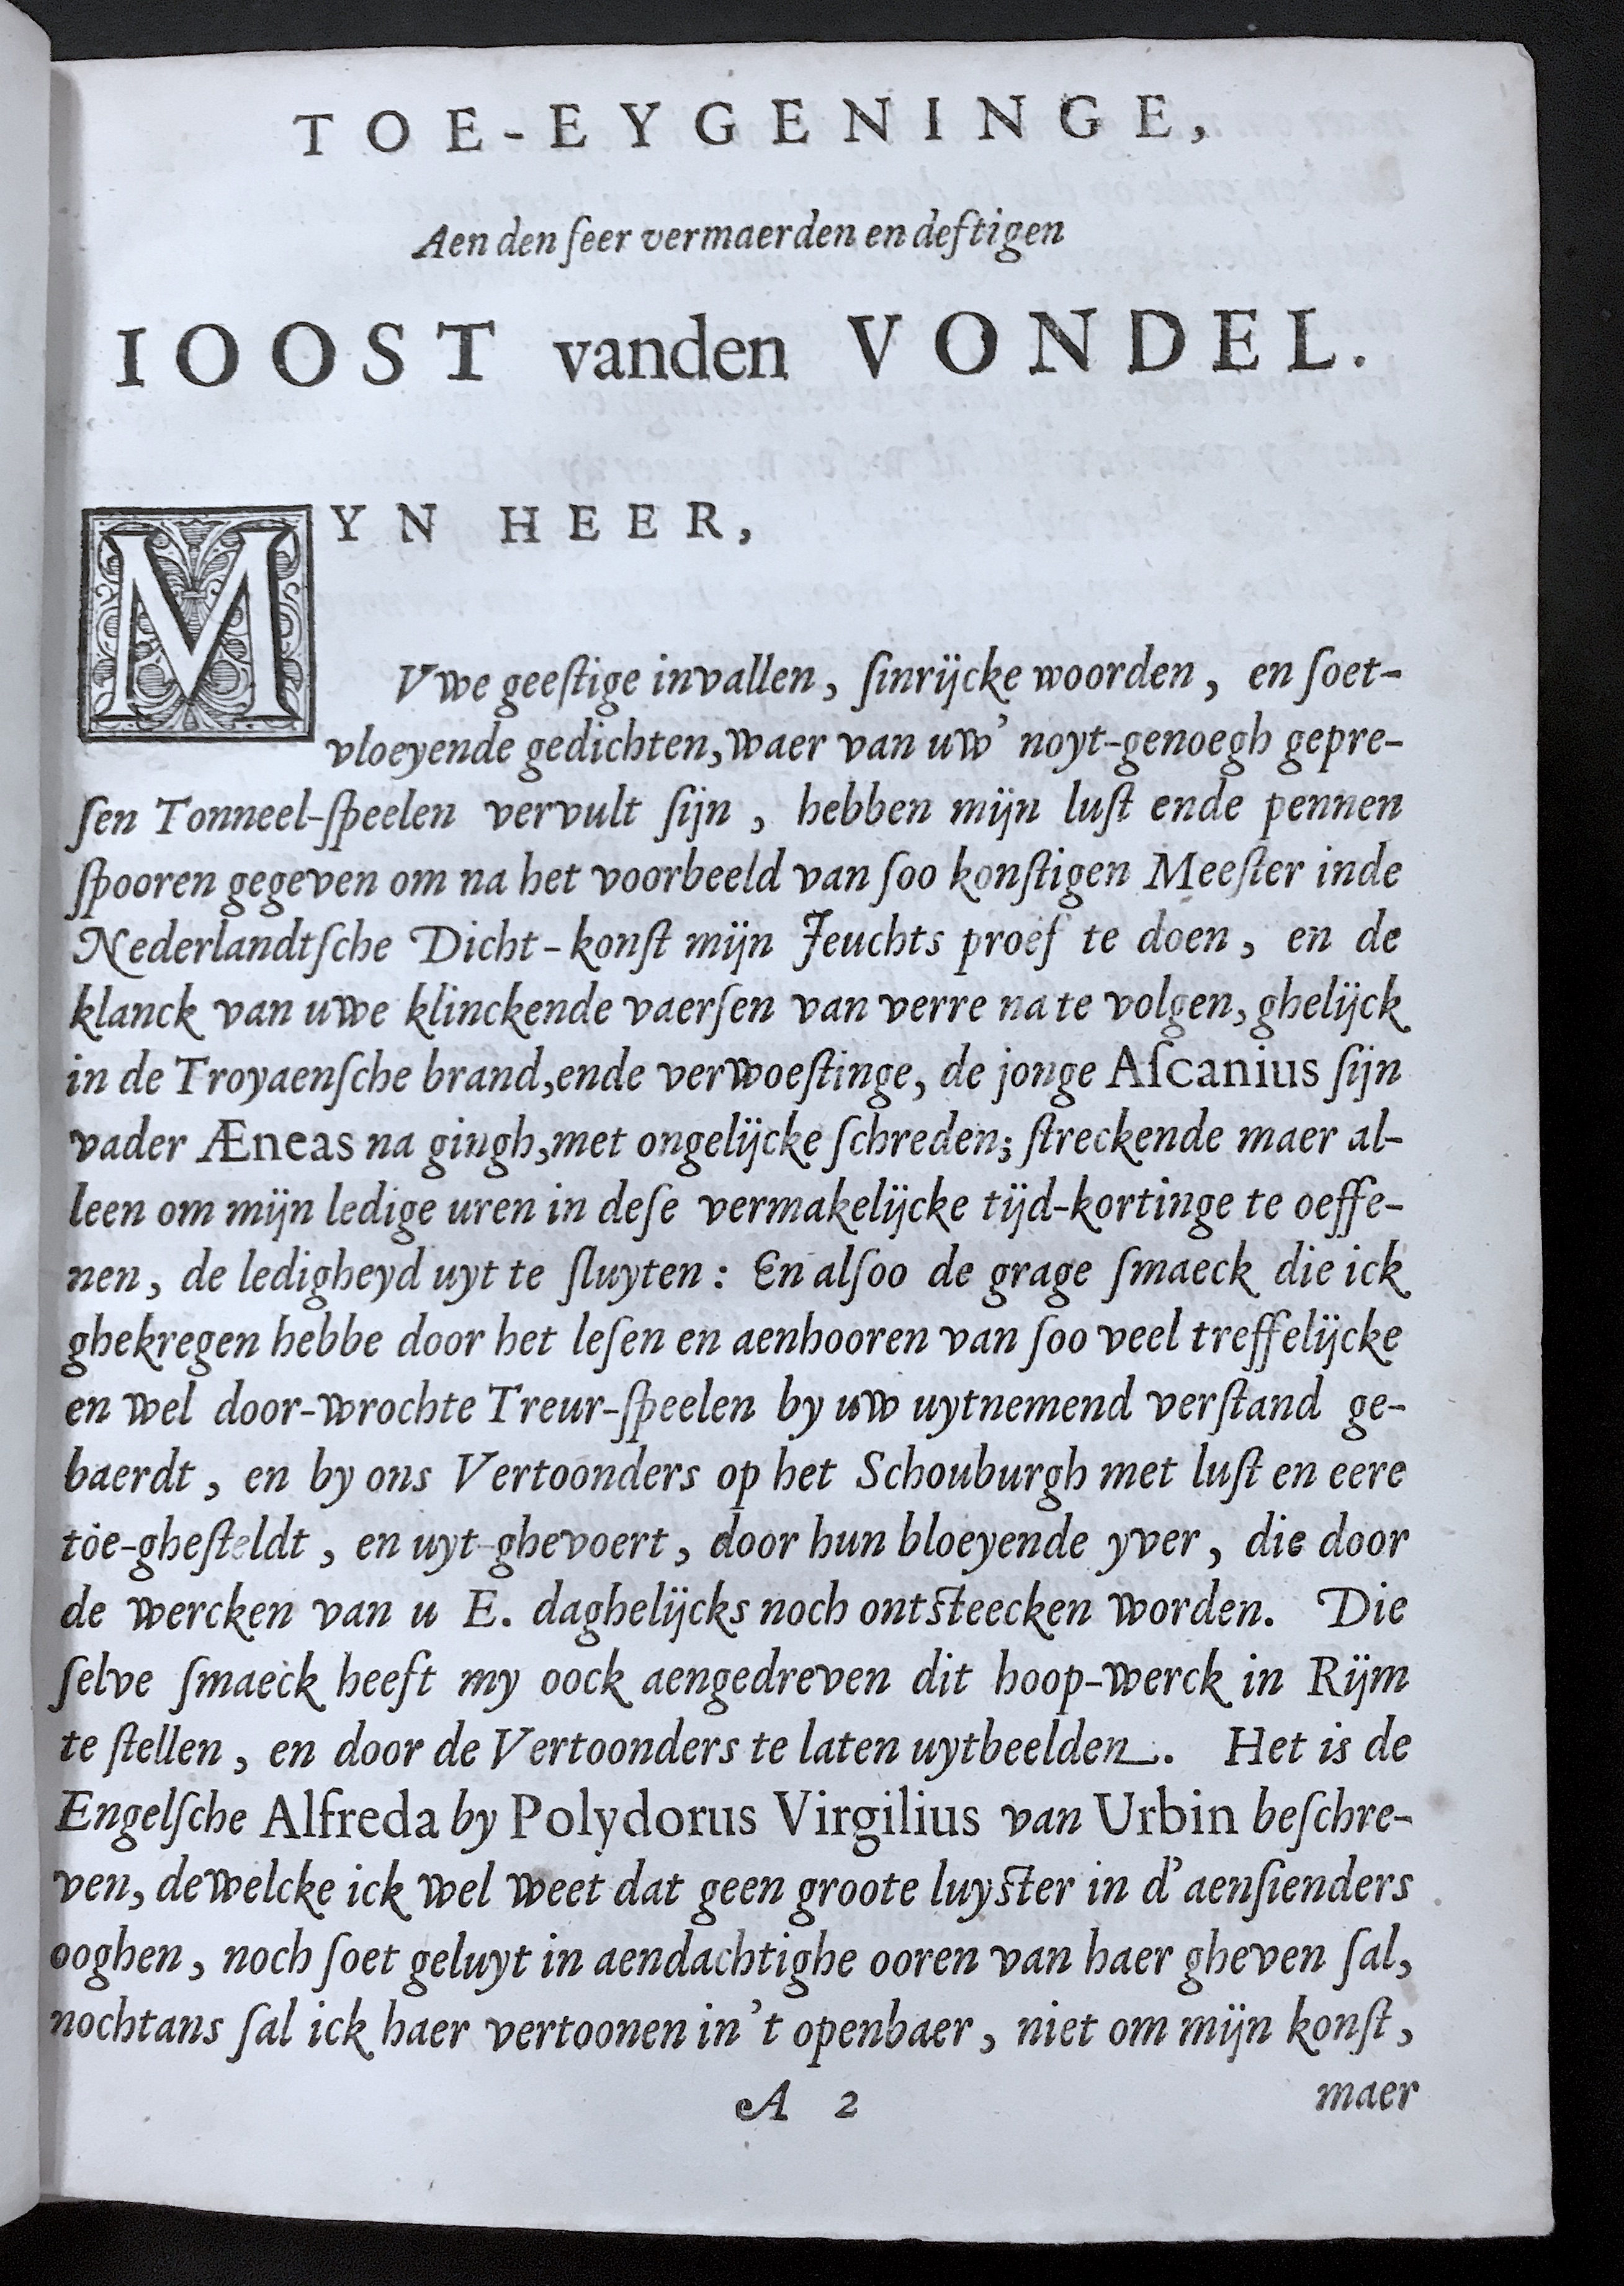 TOE-EYGENINGE,
Aen den ſeer vermaerden en deftigen
IOOST vanden VONDEL.
MYN HEER,
Vwe geeſtige invallen, ſinrijcke woorden, en ſoet-
vloeyende gedichten, waer van uw' noyt-genoegh gepre-
ſen Tonneel-ſpeelen vervult ſijn, hebben mijn luſt ende pennen
ſpooren gegeven om na het voorbeeld van ſoo konſtigen Meeſter inde
Nederlandtſche Dicht-konſt mijn Jeuchts proef te doen, en de
klanck van uwe klinckende vaerſen van verre na te volgen, ghelijck
in de Troyaenſche brand, ende verwoeſtinge, de jonge Aſcanius ſijn
vader Æneas na giugh, met ongelijcke ſchreden; ſtreckende maer al-
leen om mijn ledige uren in deſe vermakelijcke tijd-kortinge te oeffe-
nen, de ledigheyd uyt te ſluyten: En alſoo de grage ſmaeck die ick
ghekregen hebbe door het leſen en aenhooren van ſoo veel treffelijcke
en wel door-wrochte Treur-ſpeelen by uw uytnemend verſtand ge-
baerdt, en by ons Vertoonders op het Schouburgh met luſt en eere
toe-gheſteldt, en uyt-ghevoert, door hun bloeyende yver, die door
de wercken van u E. daghelijcks noch ontſteecken worden. Die
ſelve ſmaeck heeft my oock aengedreven dit hoop-werck in Rijm
te ſtellen, en door de Vertoonders te laten uytbeelden. Het is de
Engelſche Alfreda by Polydorus Virgilius van Urbin beſchre-
ven, dewelcke ick wel weet dat geen groote luyſter in d'aenſienders
ooghen, noch ſoet geluyt in aendachtighe ooren van haer gheven ſal,
nochtans ſal ick haer vertoonen in't openbaer, niet om mijn konſt,
A 2
maer